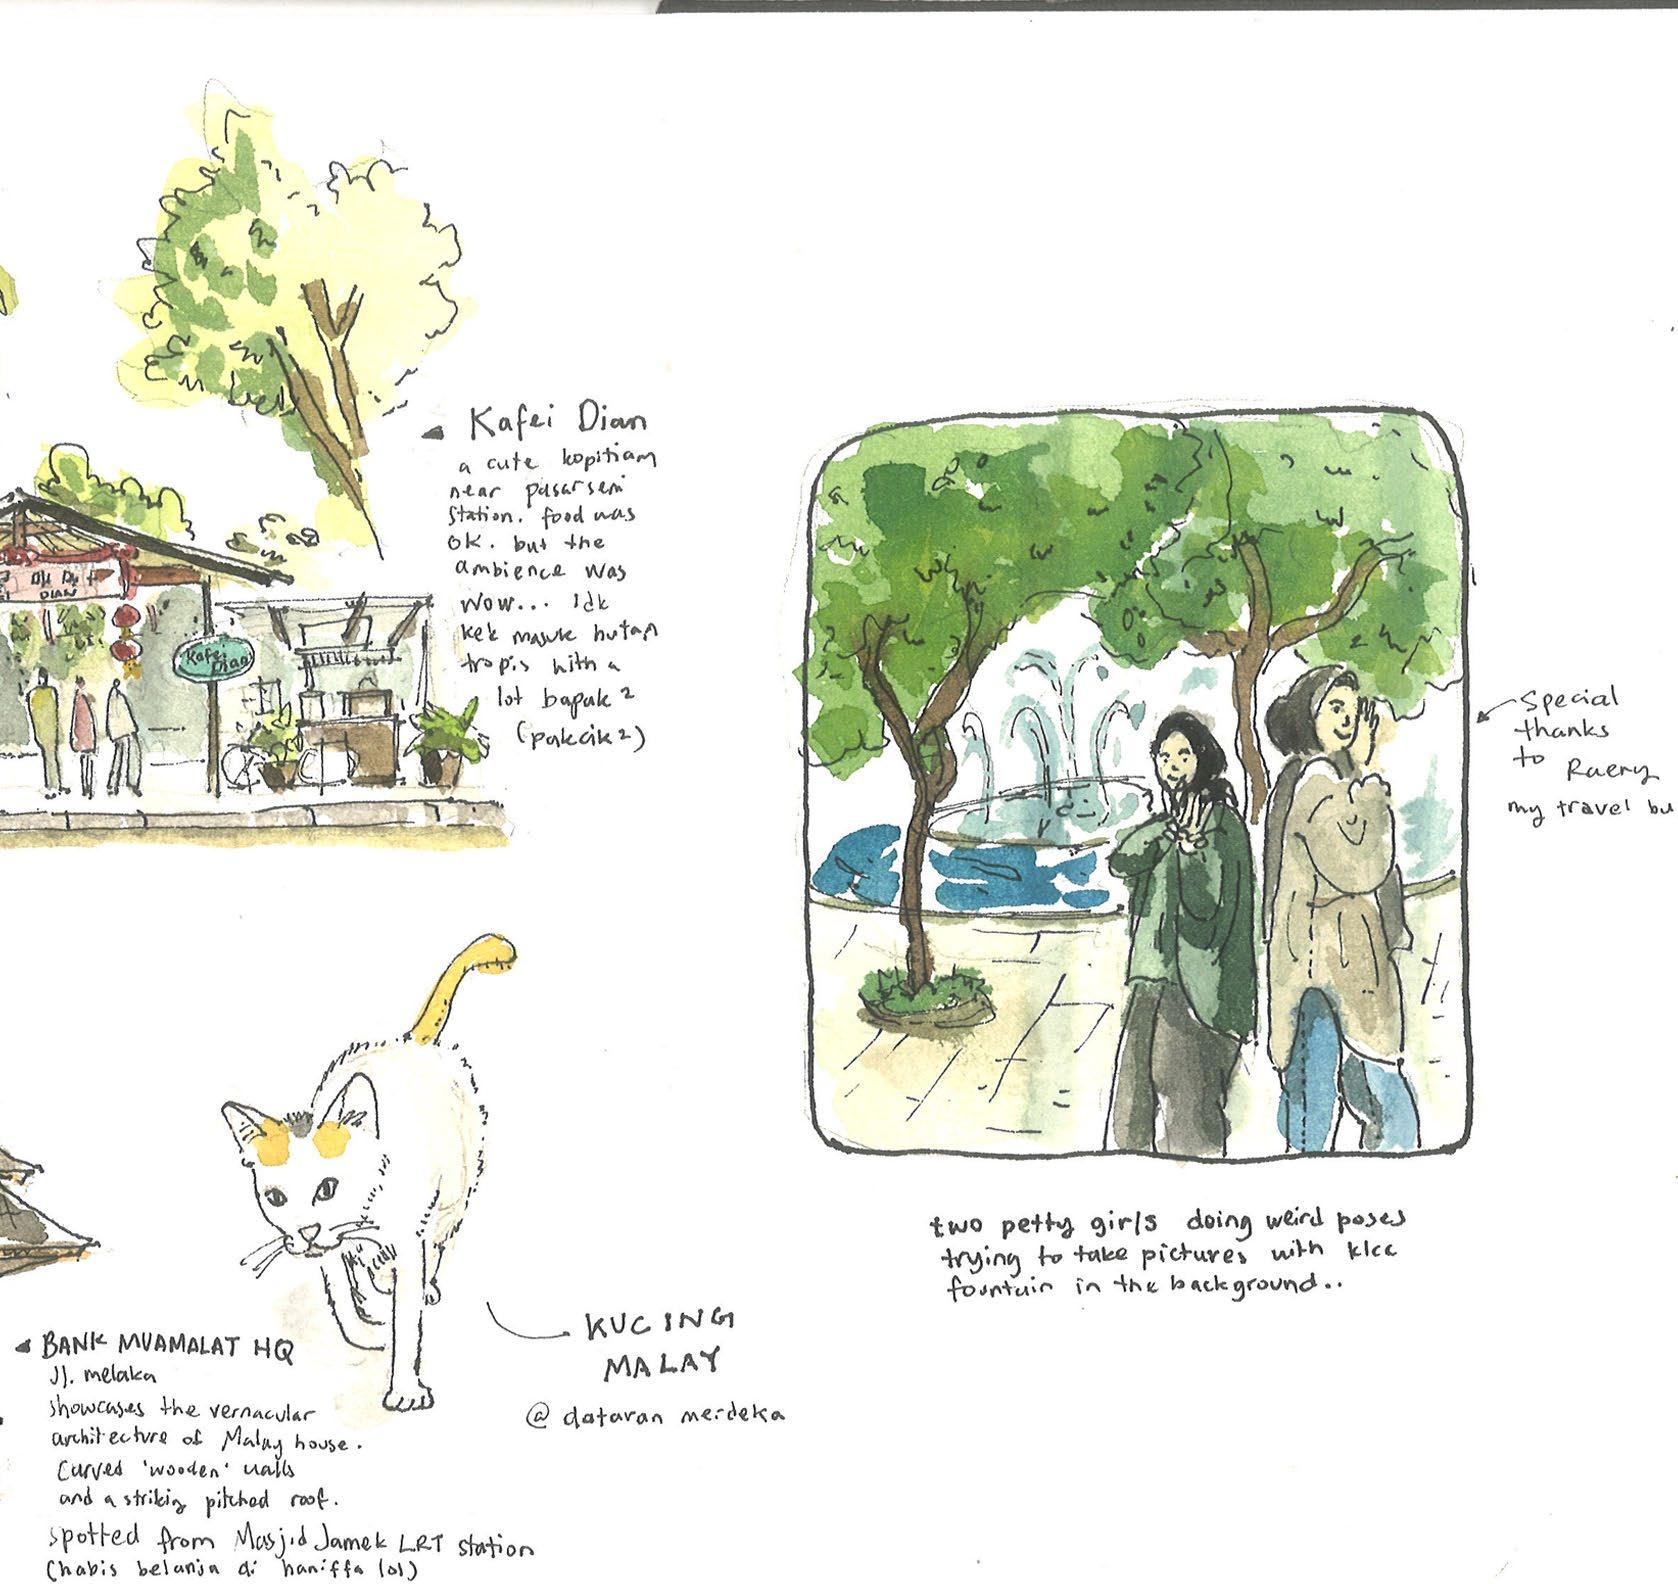 Kafei Dian
a cute kopitiam
near pasarseni
station. food was
OK. but the
ambience was
WOW... Idk
kek masuk hutan
tropis with a
lot bapak²
(pakcik²)
DIAN
Kafei
Dian
Special
thanks
to Raery
my travel bu
two petty girls doing weird poses
trying to take pictures with klcc
fountain in the background..
KUCING
MALAY
@ dataran merdeka
BANK MUAMALAT HQ
Jl. melaka
showcases the vernacular
architecture of Malay house.
Curved 'wooden' walls
and a striking pitched roof.
spotted from Masjid Jamek LRT station
(habis belanja di haniffa lol)